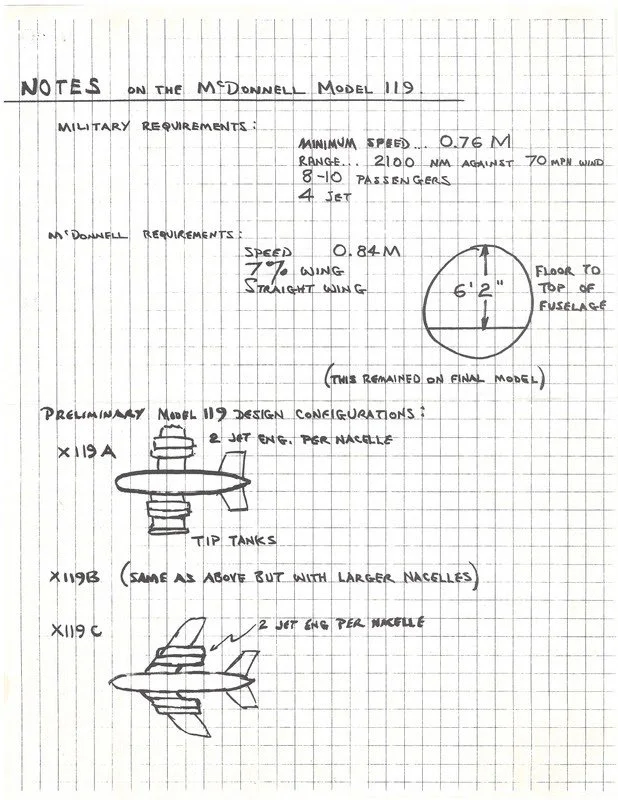 NOTES ON THE McDONNELL MODEL 119.
MILITARY REQUIREMENTS:
MINIMUM SPEED... 0.76 M
RANGE... 2100 NM AGAINST 70 MPH WIND
8-10 PASSENGERS
4 JET
McDONNELL REQUIREMENTS:
SPEED 0.84 M
7% WING
STRAIGHT WING
6'2"
FLOOR TO
TOP OF
FUSELAGE
(THIS REMAINED ON FINAL MODEL)
PRELIMINARY MODEL 119 DESIGN CONFIGURATIONS:
X119A
2 JET ENG. PER NACELLE
TIP TANKS
X119B (SAME AS ABOVE BUT WITH LARGER NACELLES)
X119C
2 JET ENG PER NACELLE